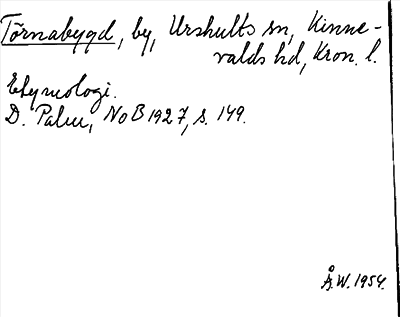 Törnabygd, by, Urshults sn, Kinne-
valds hd, Kron. l.
Etymologi.
D. Palm, NoB 1927, s. 149.
Å.W. 1954.